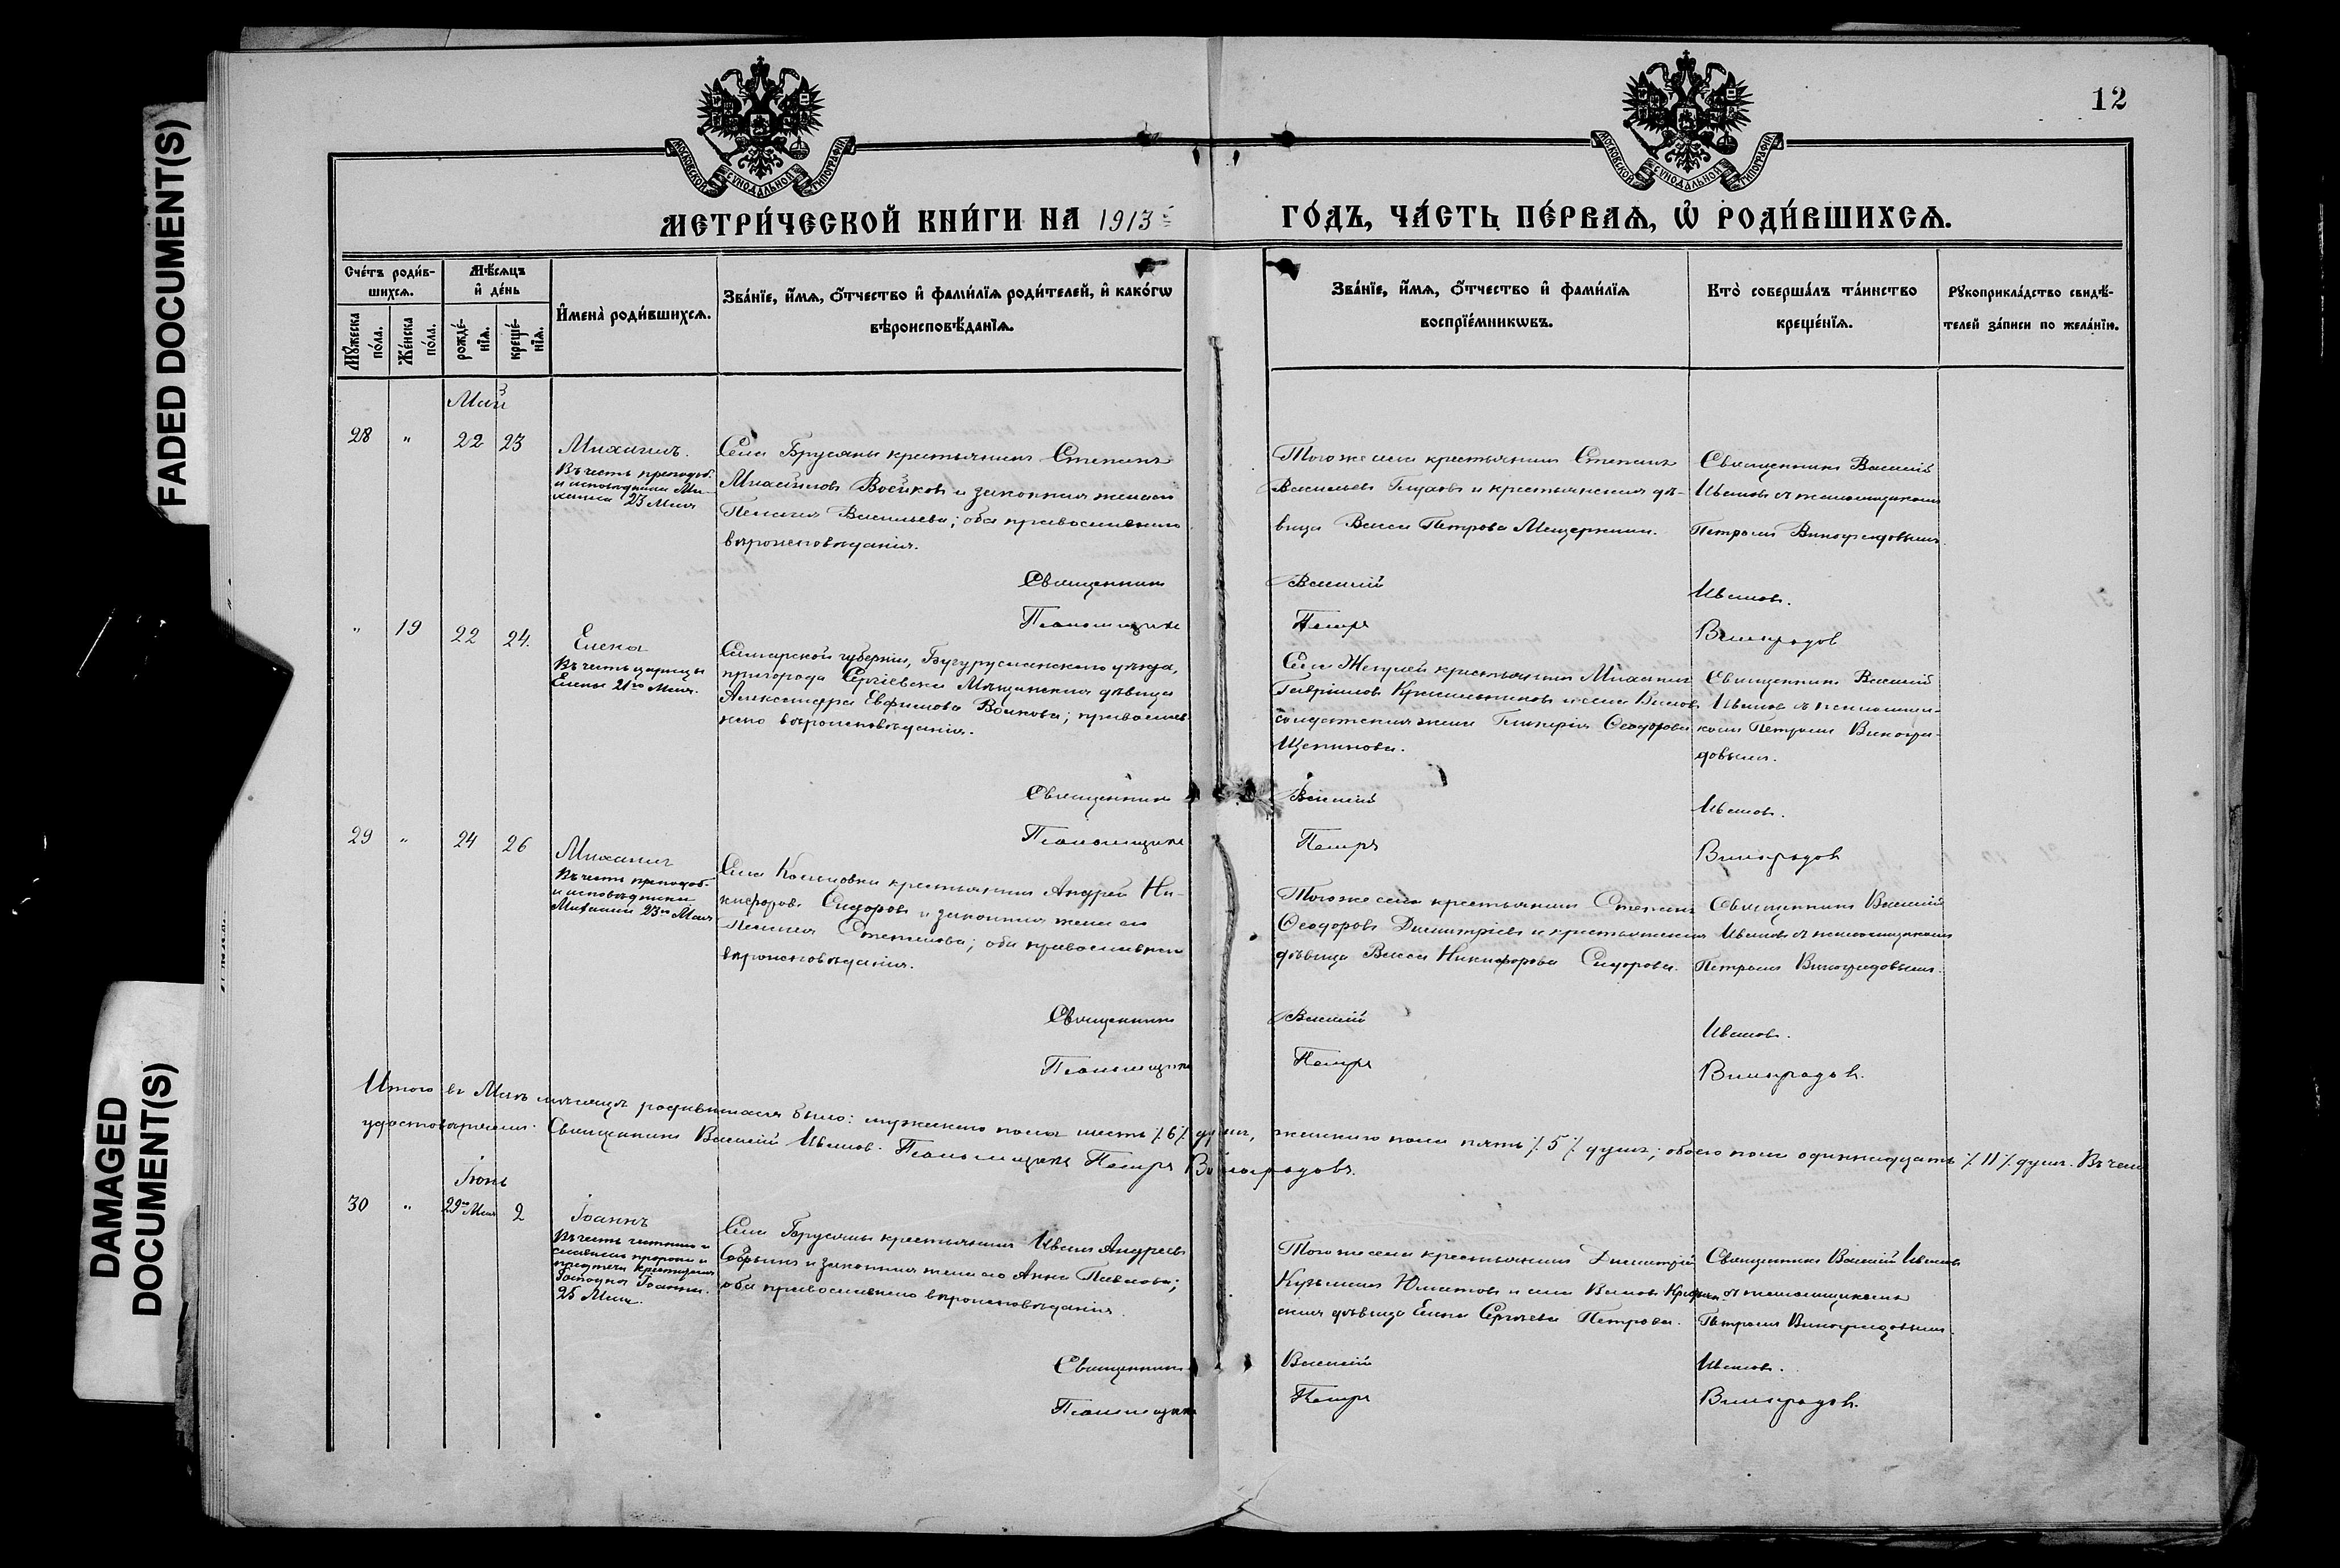 FADED DOCUMENT(S)
DAMAGED
DOCUMENT(S)
12
МОСКОВСКОЙ СѴНОДАЛЬНОЙ ТИПОГРАФІИ
МОСКОВСКОЙ СѴНОДАЛЬНОЙ ТИПОГРАФІИ
МЕТРИ́ЧЕСКОЙ КНИ́ГИ НА 1913 й
ГО́ДЪ, ЧА́СТЬ ПЕ́РВАѦ, Ѡ РОДИ́ВШИХСѦ.
Сче́тъ роди́в-
шихсѧ.
Мꙋ́жеска
по́ла.
Же́нска
по́ла.
Мѣ́сѧцъ
и҆ де́нь
рожде́-
нїѧ.
креще́-
нїѧ.
И҆мена̀ роди́вшихсѧ.
Зва́нїе, и҆́мѧ, ѻ҆́тчество и҆ фами́лїѧ роди́телей, и҆ како́гѡ
вѣроисповѣ́данїѧ.
Зва́нїе, и҆́мѧ, ѻ҆́тчество и҆ фами́лїѧ
воспрїе́мникѡвъ.
Кто̀ соверша́лъ та́инство
креще́нїѧ.
Рꙋкоприкла́дство свидѣ́-
телей за́писи по жела́нїю.
Май
28 " 22 23
Михаилъ.
Въ честь преподоб.
и исповѣдника Ми-
хаила 23 Мая
Села Брусяны крестьянинъ Степанъ
Михайловъ Войковъ и законная жена его
Пелагія Васильева; оба православнаго
вѣроисповѣданія.
Того же села крестьянинъ Степанъ
Васильевъ и крестьянская дѣ-
вица Васса Петрова Мещерякова.
Священникъ Василій
Ивановъ съ псаломщикомъ
Петромъ Виноградовымъ.
Священникъ Василій Ивановъ.
Псаломщикъ Петръ Виноградов
" 19 22 24.
Елена
Въ честь царицы
Елены 21го Мая.
Самарской губерніи, Бугурусланскаго уѣзда,
пригорода Сергіевска Мѣщанская дѣвица
Александра Евфимова Волкова; православ-
наго вѣроисповѣданія.
Села Жегулей крестьянинъ Михаилъ
Гавріиловъ и села Валовъ
солдатская жена Гликерія Ѳеодорова
Щепинова.
Священникъ Василій
Ивановъ съ псаломщи-
комъ Петромъ Виногра-
довымъ.
Священникъ Василій Ивановъ.
Псаломщикъ Петръ Виноградов
29 " 24 26
Михаилъ
Въ честь преподоб.
и исповѣдника
Михаила 23го Мая
Села крестьянинъ Андрей Ни-
кифоровъ Сидоровъ и законная жена его
Пелагія Степанова; оба православнаго
вѣроисповѣданія.
Того же села крестьянинъ Степанъ
Ѳеодоровъ Димитріевъ и крестьянская
дѣвица Васса Никифорова Сидорова.
Священникъ Василій
Ивановъ съ псаломщикомъ
Петромъ Виноградовымъ.
Священникъ Василій Ивановъ.
Псаломщикъ Петръ Виноградов.
Итого въ Маѣ мѣсяцѣ родившихся было: мужескаго пола шесть /.6/. душъ, женскаго пола пять /.5/. душъ; обоего пола одиннадцать /.11/. душъ. Въ чемъ
удостовѣряемъ: Священникъ Василій Ивановъ. Псаломщикъ Петръ Виноградовъ.
Іюнь
30 " 29го Мая 2
Іоаннъ
Въ честь честнаго и
славнаго пророка и
предтечи крестителя
Господня Іоанна.
25 Мая.
Села Брусяны крестьянинъ Иванъ Андреевъ
и законная жена его Анна Павлова;
оба православнаго вѣроисповѣданія.
Того же села крестьянинъ Димитрій
Кузьминъ Юматовъ и села Валовъ крестьян-
ская дѣвица Елена Сергѣева Петрова.
Священникъ Василій Ивановъ
съ псаломщикомъ
Петромъ Виноградовымъ.
Священникъ Василій Ивановъ.
Псаломщикъ Петръ Виноградов.